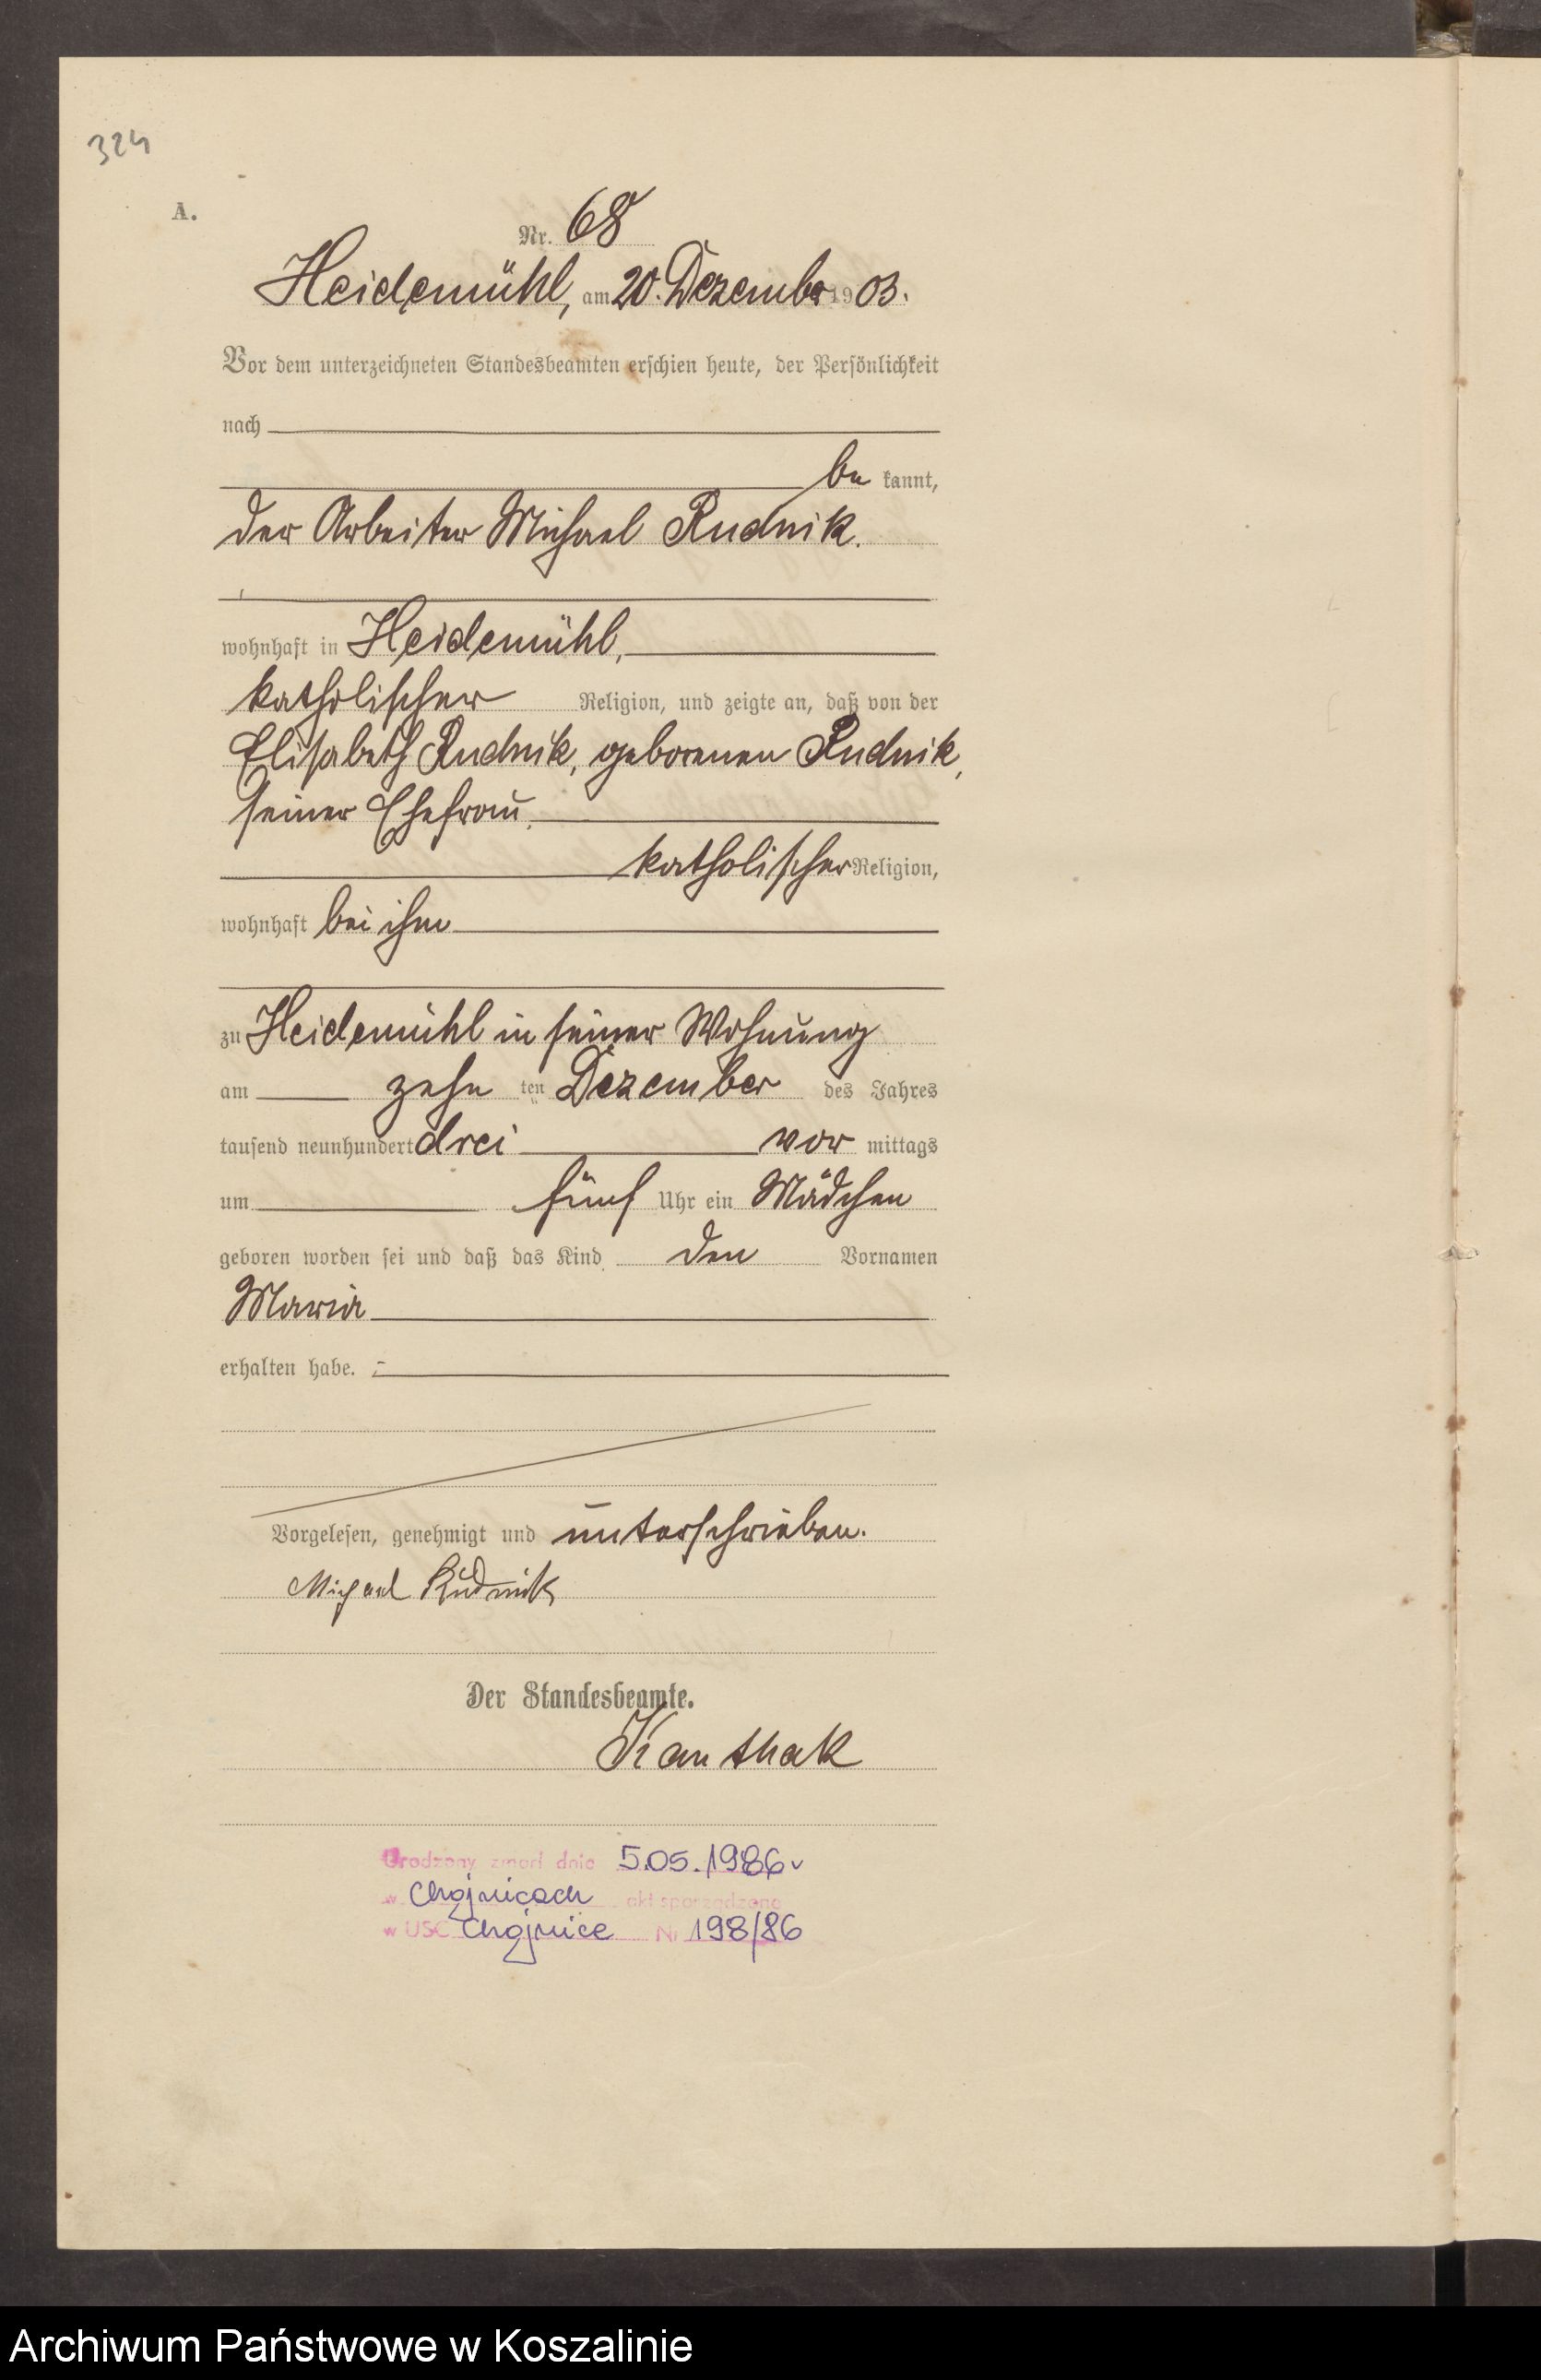 324
A.
Nr. 68
Heidemühl, am 20. Dezember 1903.
Vor dem unterzeichneten Standesbeamten erschien heute, der Persönlichkeit
nach
be kannt,
der Arbeiter Michael Rudnik.
wohnhaft in Heidemühl,
katholischer Religion, und zeigte an, daß von der
Elisabeth Rudnik, geborenen Rudnik,
seiner Ehefrau,
katholischer Religion,
wohnhaft bei ihm
zu Heidemühl in seiner Wohnung
am zehn ten Dezember des Jahres
tausend neunhundert drei vor mittags
um fünf Uhr ein Mädchen
geboren worden sei und daß das Kind den Vornamen
Maria
erhalten habe.
Vorgelesen, genehmigt und unterschrieben.
Michael Rudnik
Der Standesbeamte.
Kanthak
Urodzony zmarł dnia 5.05.1986 r
w Chojnicach akt sporządzono
w USC Chojnice Nr 198/86
Archiwum Państwowe w Koszalinie